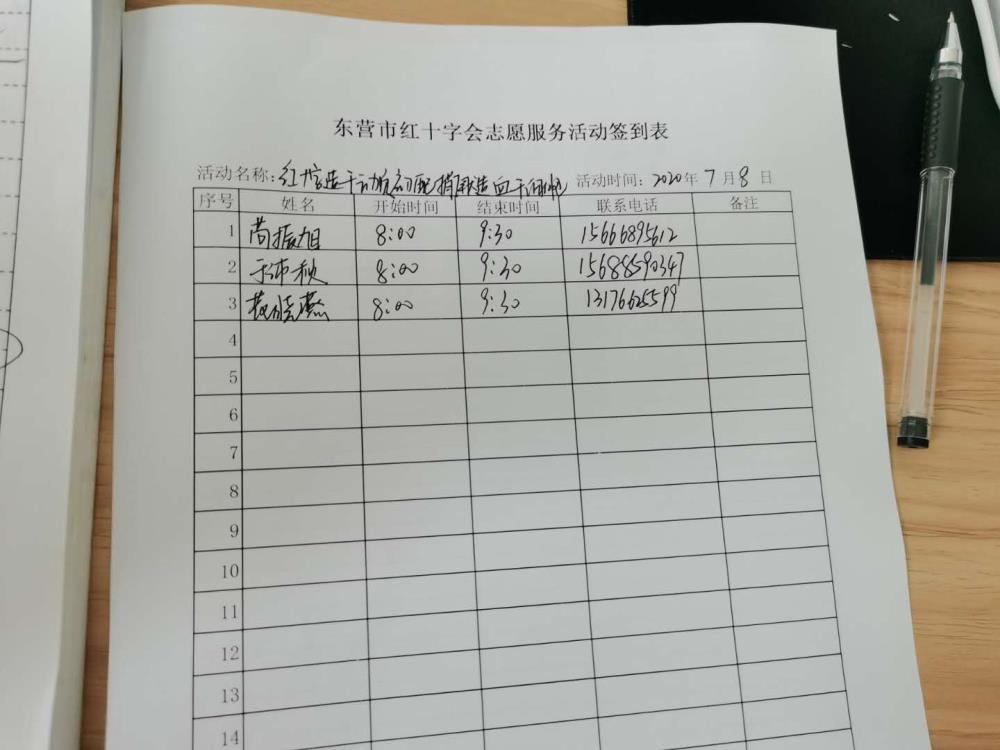 东营市红十字会志愿服务活动签到表
活动名称: 红 造干 初配 捐 造血干细胞 活动时间: 2020年7月8日
序号 姓名 开始时间 结束时间 联系电话 备注
1 尚振旭 8:00 9:30 15666895612
2 于沛秋 8:00 9:30 15688590347
3 晓燕 8:00 9:30 13176625599
4
5
6
7
8
9
10
11
12
13
14